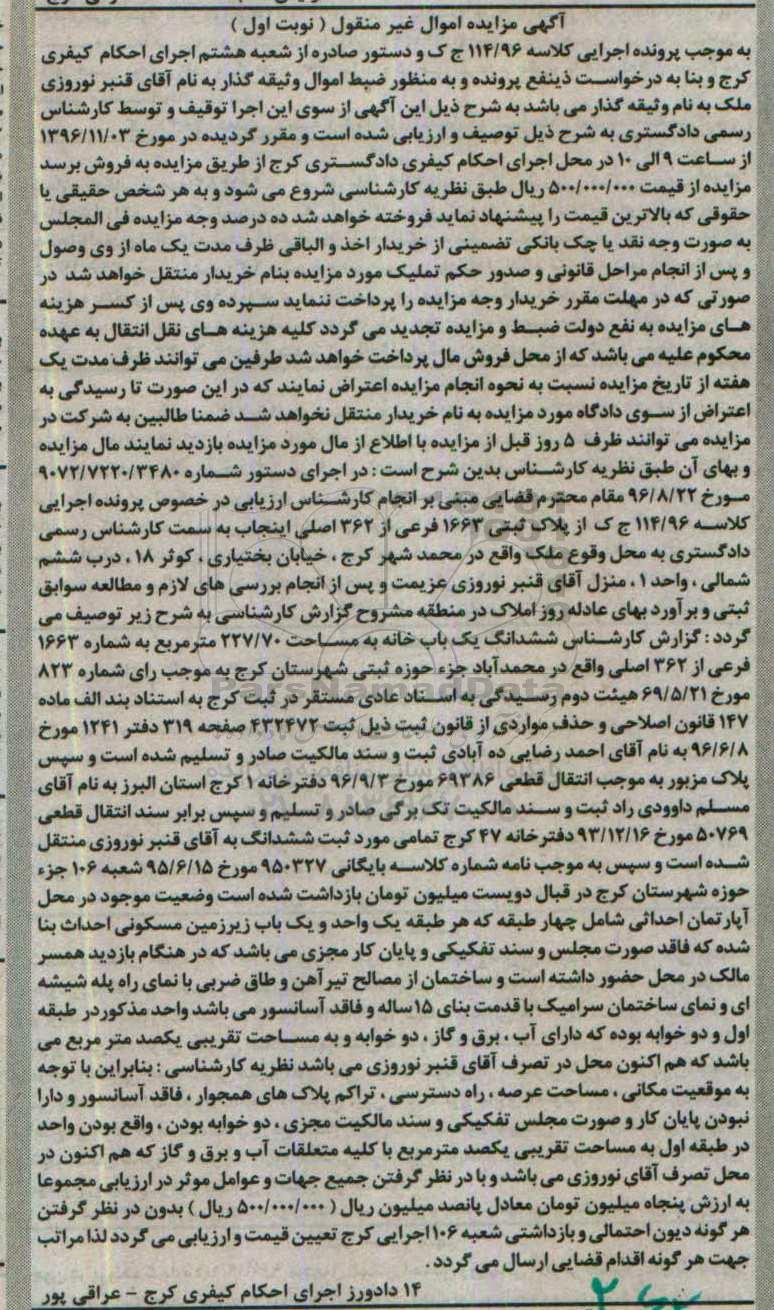 آگهی مزایده اموال غیر منقول ( نوبت اول )
به موجب پرونده اجرایی کلاسه ۱۱۴/۹۶ ج ک و دستور صادره از شعبه هشتم اجرای احکام کیفری
کرج و بنا به درخواست ذینفع پرونده و به منظور ضبط اموال وثیقه گذار به نام آقای قنبر نوروزی
ملک به نام وثیقه گذار می باشد به شرح ذیل این آگهی از سوی این اجرا توقیف و توسط کارشناس
رسمی دادگستری به شرح ذیل توصیف و ارزیابی شده است و مقرر گردیده در مورخ ۱۳۹۶/۱۱/۰۳
از ساعت ۹ الی ۱۰ در محل اجرای احکام کیفری دادگستری کرج از طریق مزایده به فروش برسد
مزایده از قیمت ۵۰۰/۰۰۰/۰۰۰ ریال طبق نظریه کارشناسی شروع می شود و به هر شخص حقیقی یا
حقوقی که بالاترین قیمت را پیشنهاد نماید فروخته خواهد شد ده درصد وجه مزایده فی المجلس
به صورت وجه نقد یا چک بانکی تضمینی از خریدار اخذ و الباقی ظرف مدت یک ماه از وی وصول
و پس از انجام مراحل قانونی و صدور حکم تملیک مورد مزایده بنام خریدار منتقل خواهد شد در
صورتی که در مهلت مقرر خریدار وجه مزایده را پرداخت ننماید سپرده وی پس از کسر هزینه
های مزایده به نفع دولت ضبط و مزایده تجدید می گردد کلیه هزینه های نقل انتقال به عهده
محکوم علیه می باشد که از محل فروش مال پرداخت خواهد شد طرفین می توانند ظرف مدت یک
هفته از تاریخ مزایده نسبت به نحوه انجام مزایده اعتراض نمایند که در این صورت تا رسیدگی به
اعتراض از سوی دادگاه مورد مزایده به نام خریدار منتقل نخواهد شد ضمنا طالبین به شرکت در
مزایده می توانند ظرف ۵ روز قبل از مزایده با اطلاع از مال مورد مزایده بازدید نمایند مال مزایده
و بهای آن طبق نظریه کارشناس بدین شرح است : در اجرای دستور شماره ۹۰۷۲/۷۲۲۰/۳۴۸۰
مورخ ۹۶/۸/۲۲ مقام محترم قضایی مبنی بر انجام کارشناس ارزیابی در خصوص پرونده اجرایی
کلاسه ۱۱۴/۹۶ ج ک از پلاک ثبتی ۱۶۶۳ فرعی از ۳۶۲ اصلی اینجانب به سمت کارشناس رسمی
دادگستری به محل وقوع ملک واقع در محمد شهر کرج ، خیابان بختیاری ، کوثر ۱۸ ، درب ششم
شمالی ، واحد ۱ ، منزل آقای قنبر نوروزی عزیمت و پس از انجام بررسی های لازم و مطالعه سوابق
ثبتی و برآورد بهای عادله روز املاک در منطقه مشروح گزارش کارشناسی به شرح زیر توصیف می
گردد : گزارش کارشناس ششدانگ یک باب خانه به مساحت ۲۲۷/۷۰ مترمربع به شماره ۱۶۶۳
فرعی از ۳۶۲ اصلی واقع در محمدآباد جزء حوزه ثبتی شهرستان کرج به موجب رای شماره ۸۲۳
مورخ ۶۹/۵/۲۱ هیئت دوم رسیدگی به اسناد عادی مستقر در ثبت کرج به استناد بند الف ماده
۱۴۷ قانون اصلاحی و حذف مواردی از قانون ثبت ذیل ثبت ۴۳۲۴۷۲ صفحه ۳۱۹ دفتر ۱۲۴۱ مورخ
۹۶/۶/۸ به نام آقای احمد رضایی ده آبادی ثبت و سند مالکیت صادر و تسلیم شده است و سپس
پلاک مزبور به موجب انتقال قطعی ۶۹۳۸۶ مورخ ۹۶/۹/۳ دفترخانه ۱ کرج استان البرز به نام آقای
مسلم داوودی راد ثبت و سند مالکیت تک برگی صادر و تسلیم و سپس برابر سند انتقال قطعی
۵۰۷۶۹ مورخ ۹۳/۱۲/۱۶ دفترخانه ۴۷ کرج تمامی مورد ثبت ششدانگ به آقای قنبر نوروزی منتقل
شده است و سپس به موجب نامه شماره کلاسه بایگانی ۹۵۰۳۲۷ مورخ ۹۵/۶/۱۵ شعبه ۱۰۶ جزء
حوزه شهرستان کرج در قبال دویست میلیون تومان بازداشت شده است وضعیت موجود در محل
آپارتمان احداثی شامل چهار طبقه که هر طبقه یک واحد و یک باب زیرزمین مسکونی احداث بنا
شده که فاقد صورت مجلس و سند تفکیکی و پایان کار مجزی می باشد که در هنگام بازدید همسر
مالک در محل حضور داشته است و ساختمان از مصالح تیرآهن و طاق ضربی با نمای راه پله شیشه
ای و نمای ساختمان سرامیک با قدمت بنای ۱۵ ساله و فاقد آسانسور می باشد واحد مذکور در طبقه
اول و دو خوابه بوده که دارای آب ، برق و گاز ، دو خوابه و به مساحت تقریبی یکصد متر مربع می
باشد که هم اکنون محل در تصرف آقای قنبر نوروزی می باشد نظریه کارشناسی : بنابراین با توجه
به موقعیت مکانی ، مساحت عرصه ، راه دسترسی ، تراکم پلاک های همجوار ، فاقد آسانسور و دارا
نبودن پایان کار و صورت مجلس تفکیکی و سند مالکیت مجزی ، دو خوابه بودن ، واقع بودن واحد
در طبقه اول به مساحت تقریبی یکصد مترمربع با کلیه متعلقات آب و برق و گاز که هم اکنون در
محل تصرف آقای نوروزی می باشد و با در نظر گرفتن جمیع جهات و عوامل موثر در ارزیابی مجموعا
به ارزش پنجاه میلیون تومان معادل پانصد میلیون ریال ( ۵۰۰/۰۰۰/۰۰۰ ریال ) بدون در نظر گرفتن
هر گونه دیون احتمالی و بازداشتی شعبه ۱۰۶ اجرایی کرج تعیین قیمت و ارزیابی می گردد لذا مراتب
جهت هر گونه اقدام قضایی ارسال می گردد .
۱۴ دادورز اجرای احکام کیفری کرج - عراقی پور